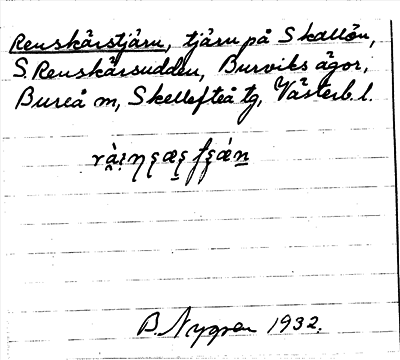 Renskärstjärn, tjärn på Skallön,
S. Renskärsudden, Burviks ägor,
Bureå sn, Skellefteå tg, Västerb. l.
B. Nygren 1932.